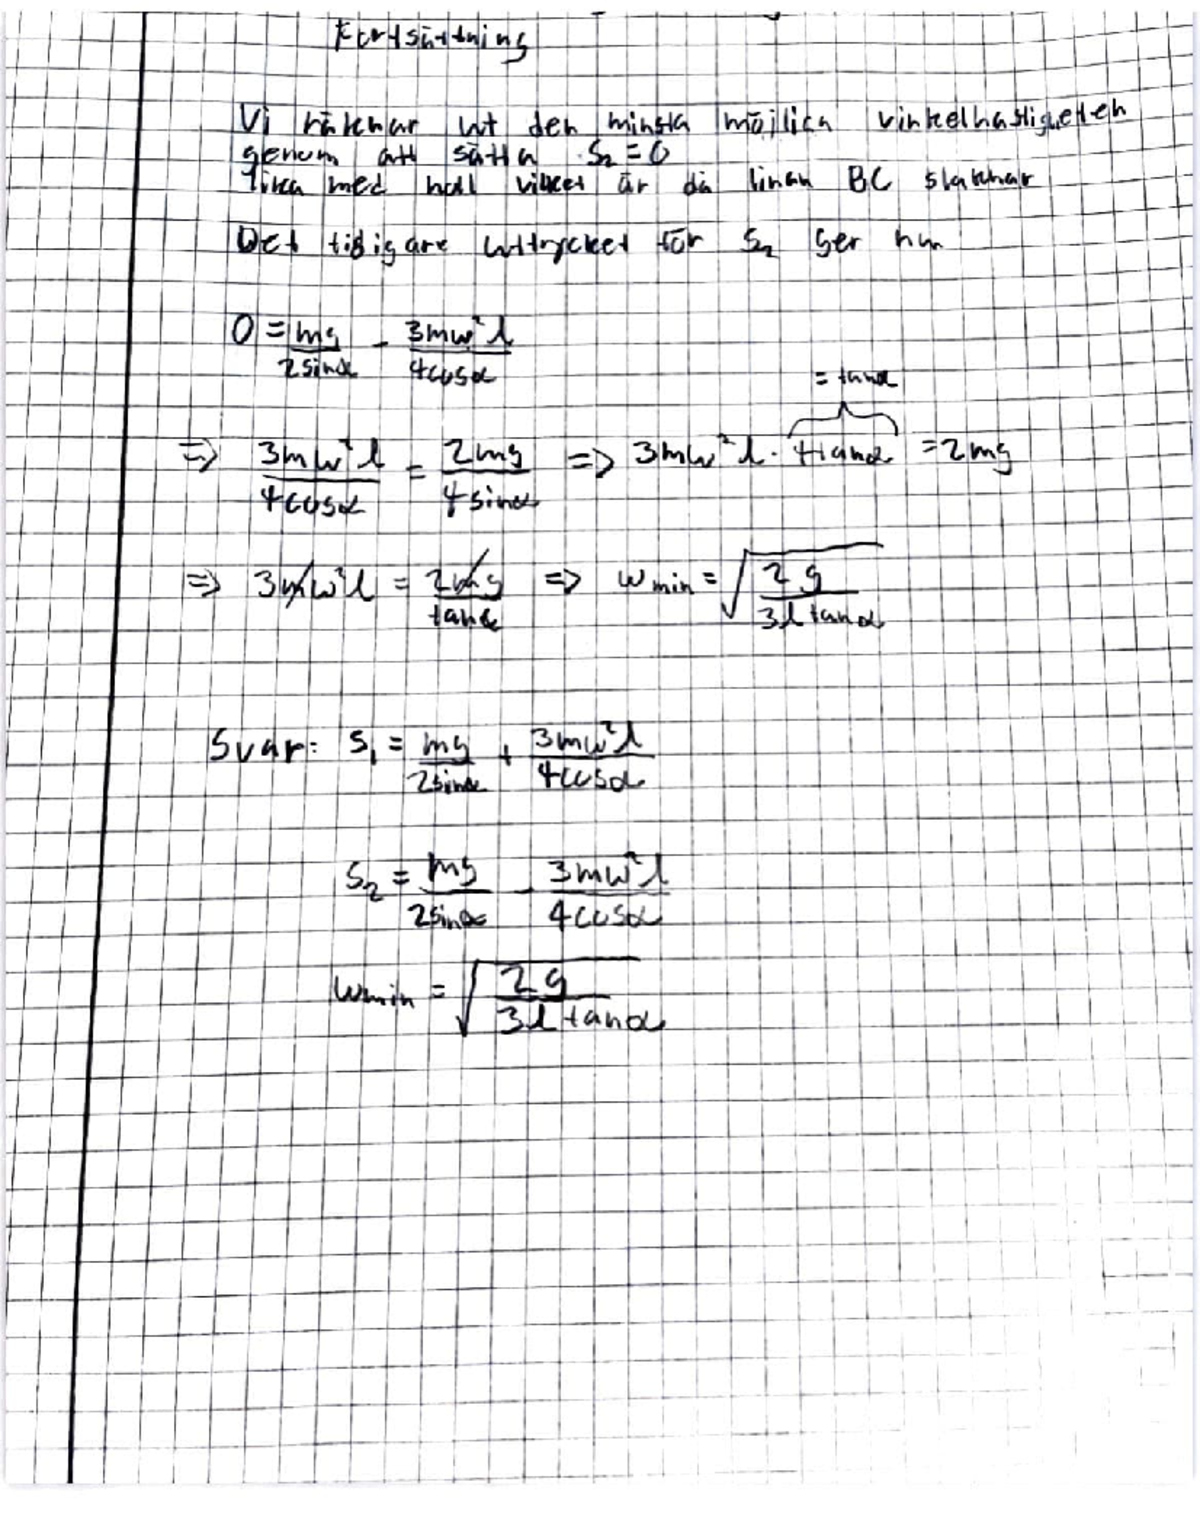 Fortsättning
Vi räknar ut den minsta möjliga vinkelhastigheten
genom att sätta S₂ = 0
lika med noll vilket är då linan BC slaknar
Det tidigare uttrycket för S₂ ger nu
0 = mg/2sinα - 3mω²l/4cosα
= tanα
=> 3mω²l/4cosα = 2mg/4sinα => 3mω²l · tanα = 2mg
=> 3mω²l = 2mg/tanα => ωmin = √(2g/3l tanα)
Svar: S₁ = mg/2sinα + 3mω²l/4cosα
S₂ = mg/2sinα - 3mω²l/4cosα
ωmin = √(2g/3l tanα)